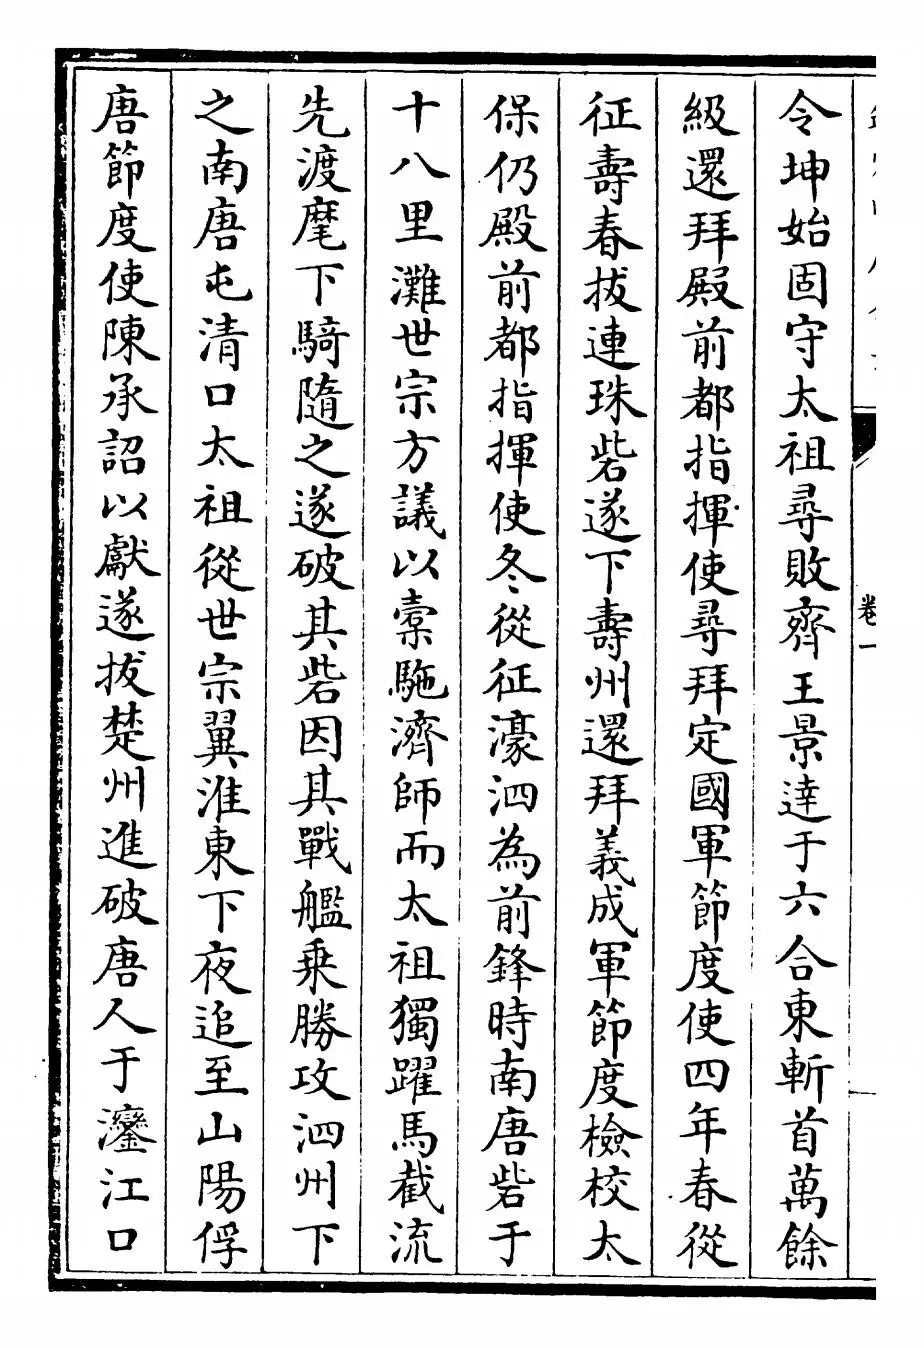 卷一
令坤始固守太祖尋敗齊王景達于六合東斬首萬餘
級還拜殿前都指揮使尋拜定國軍節度使四年春從
征壽春拔連珠砦遂下壽州還拜義成軍節度檢校太
保仍殿前都指揮使冬從征濠泗為前鋒時南唐砦于
十八里灘世宗方議以槖駞濟師而太祖獨躍馬截流
先渡麾下騎隨之遂破其砦因其戰艦乗勝攻泗州下
之南唐屯清口太祖從世宗翼淮東下夜追至山陽俘
唐節度使陳承詔以獻遂拔楚州進破唐人于灣江口